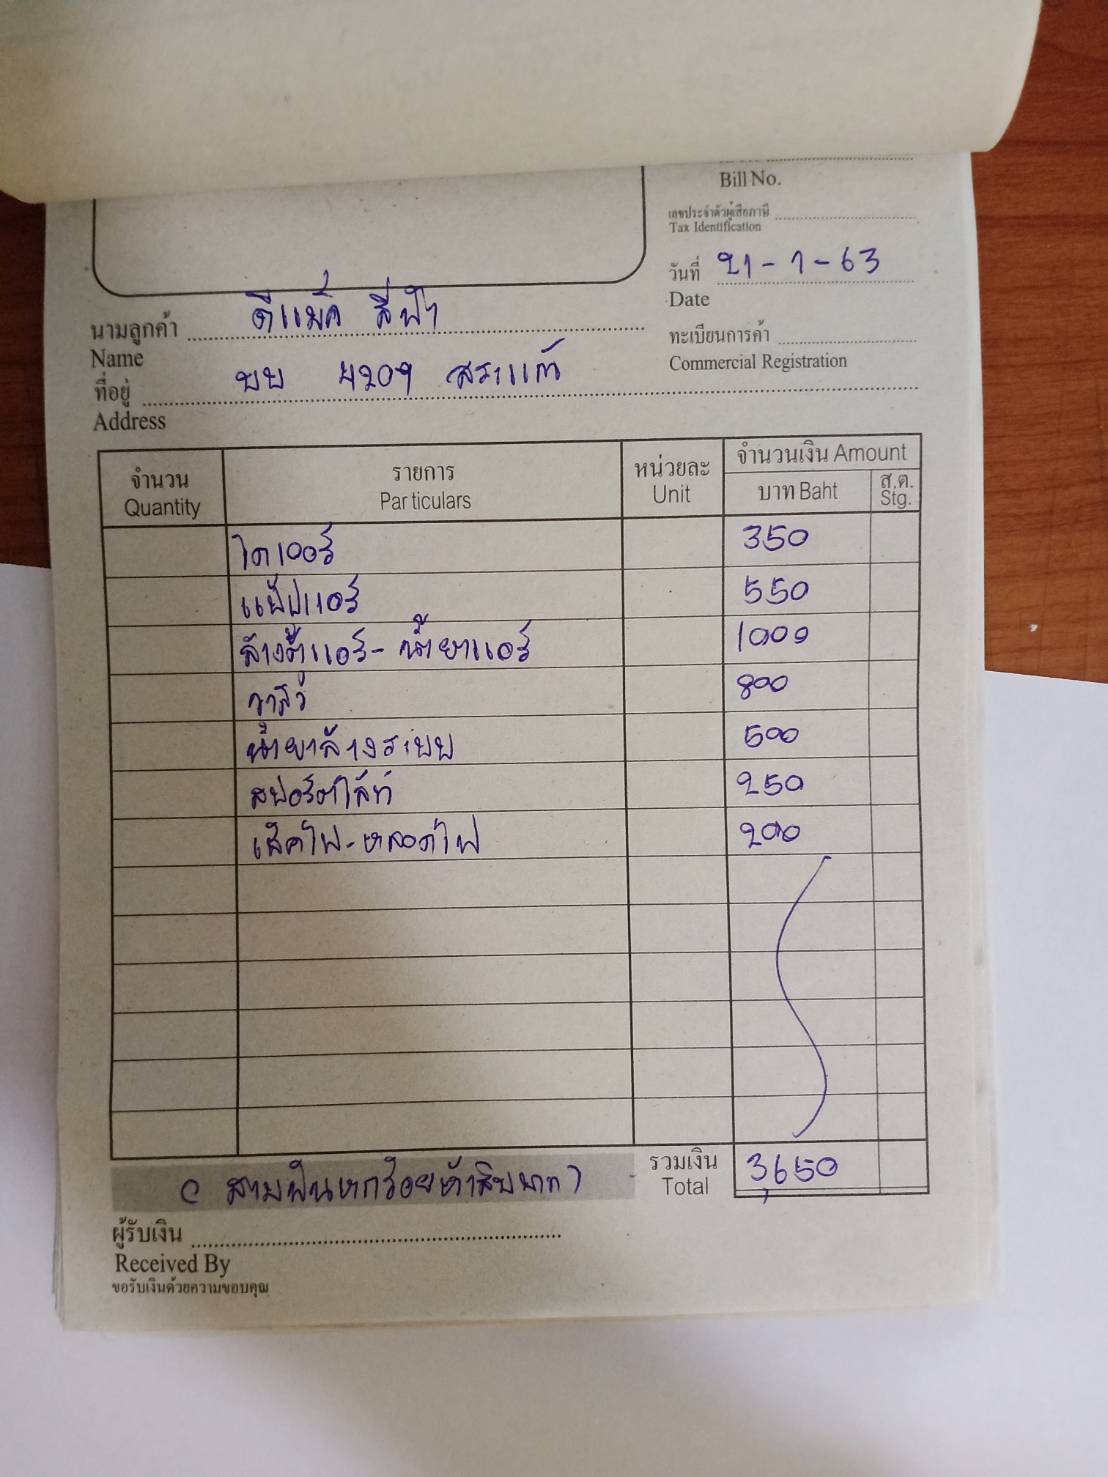 Bill No.
เลขประจำตัวผู้เสียภาษี
Tax Identification
วันที่ 21-1-63
Date
นามลูกค้า ดีแม็ค สีฟ้า
Name
ทะเบียนการค้า
Commercial Registration
ที่อยู่ บบ 4209 สระแก้ว
Address
จำนวน รายการ หน่วยละ จำนวนเงิน Amount
Quantity Particulars Unit บาท Baht ส.ต. Stg.
ไดเออร์ 350
แป๊ปแอร์ 550
ล้างตู้แอร์-น้ำยาแอร์ 1000
วาล์ว 800
น้ำยาล้างระบบ 500
สปอร์ตไล้ท์ 250
เช็คไฟ-หลอดไฟ 200
(สามพันหกร้อยห้าสิบบาท) รวมเงิน 3,650
Total
ผู้รับเงิน
Received By
ขอรับเงินด้วยความขอบคุณ